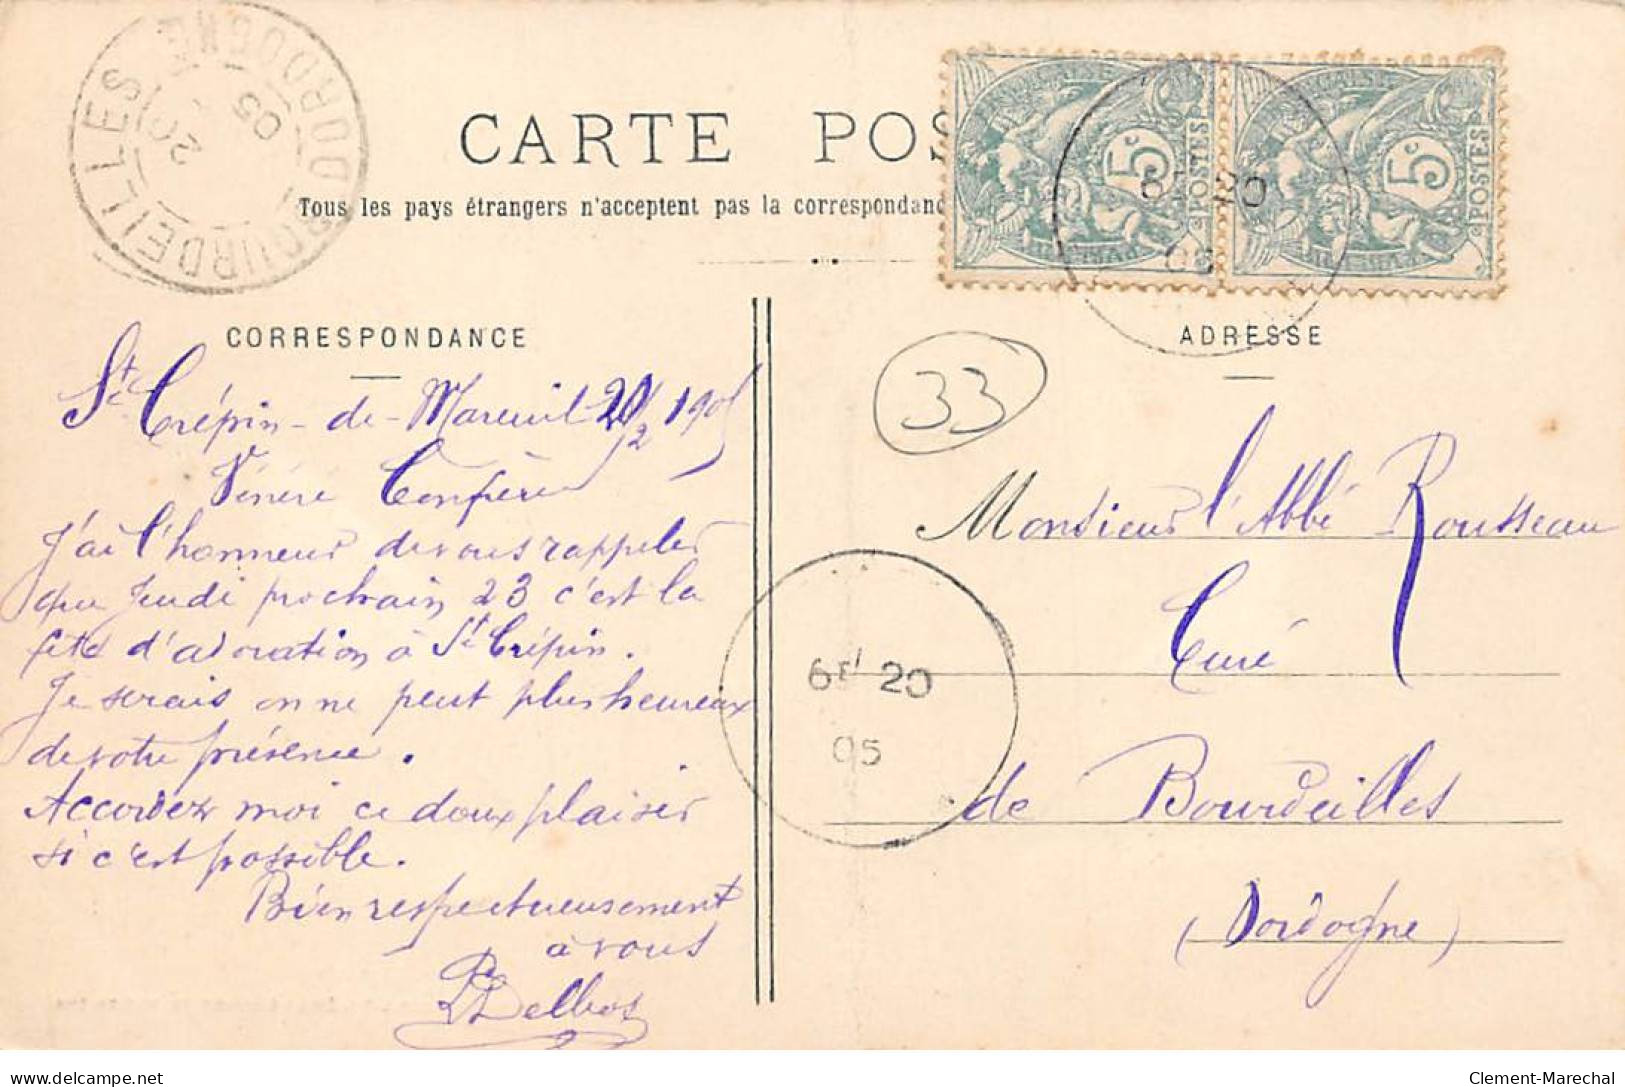 BOURDEILLES DORDOGNE
20
05
CARTE POS
Tous les pays étrangers n'acceptent pas la correspondanc
5c POSTES
5c POSTES
20
05
CORRESPONDANCE
ADRESSE
33
St Crépin-de-Mareuil 20/2 1905
Vénéré Confrère
J'ai l'honneur de vous rappeler
que Jeudi prochain 23 c'est la
fête d'adoration à St Crépin.
Je serais on ne peut plus heureux
de votre présence.
Accordez moi ce doux plaisir
si c'est possible.
Bien respectueusement
à vous
Delbos
Monsieur l'Abbé Rousseau
Curé
de Bourdeilles
(Dordogne)
20
05
delcampe.net
Clement-Marechal